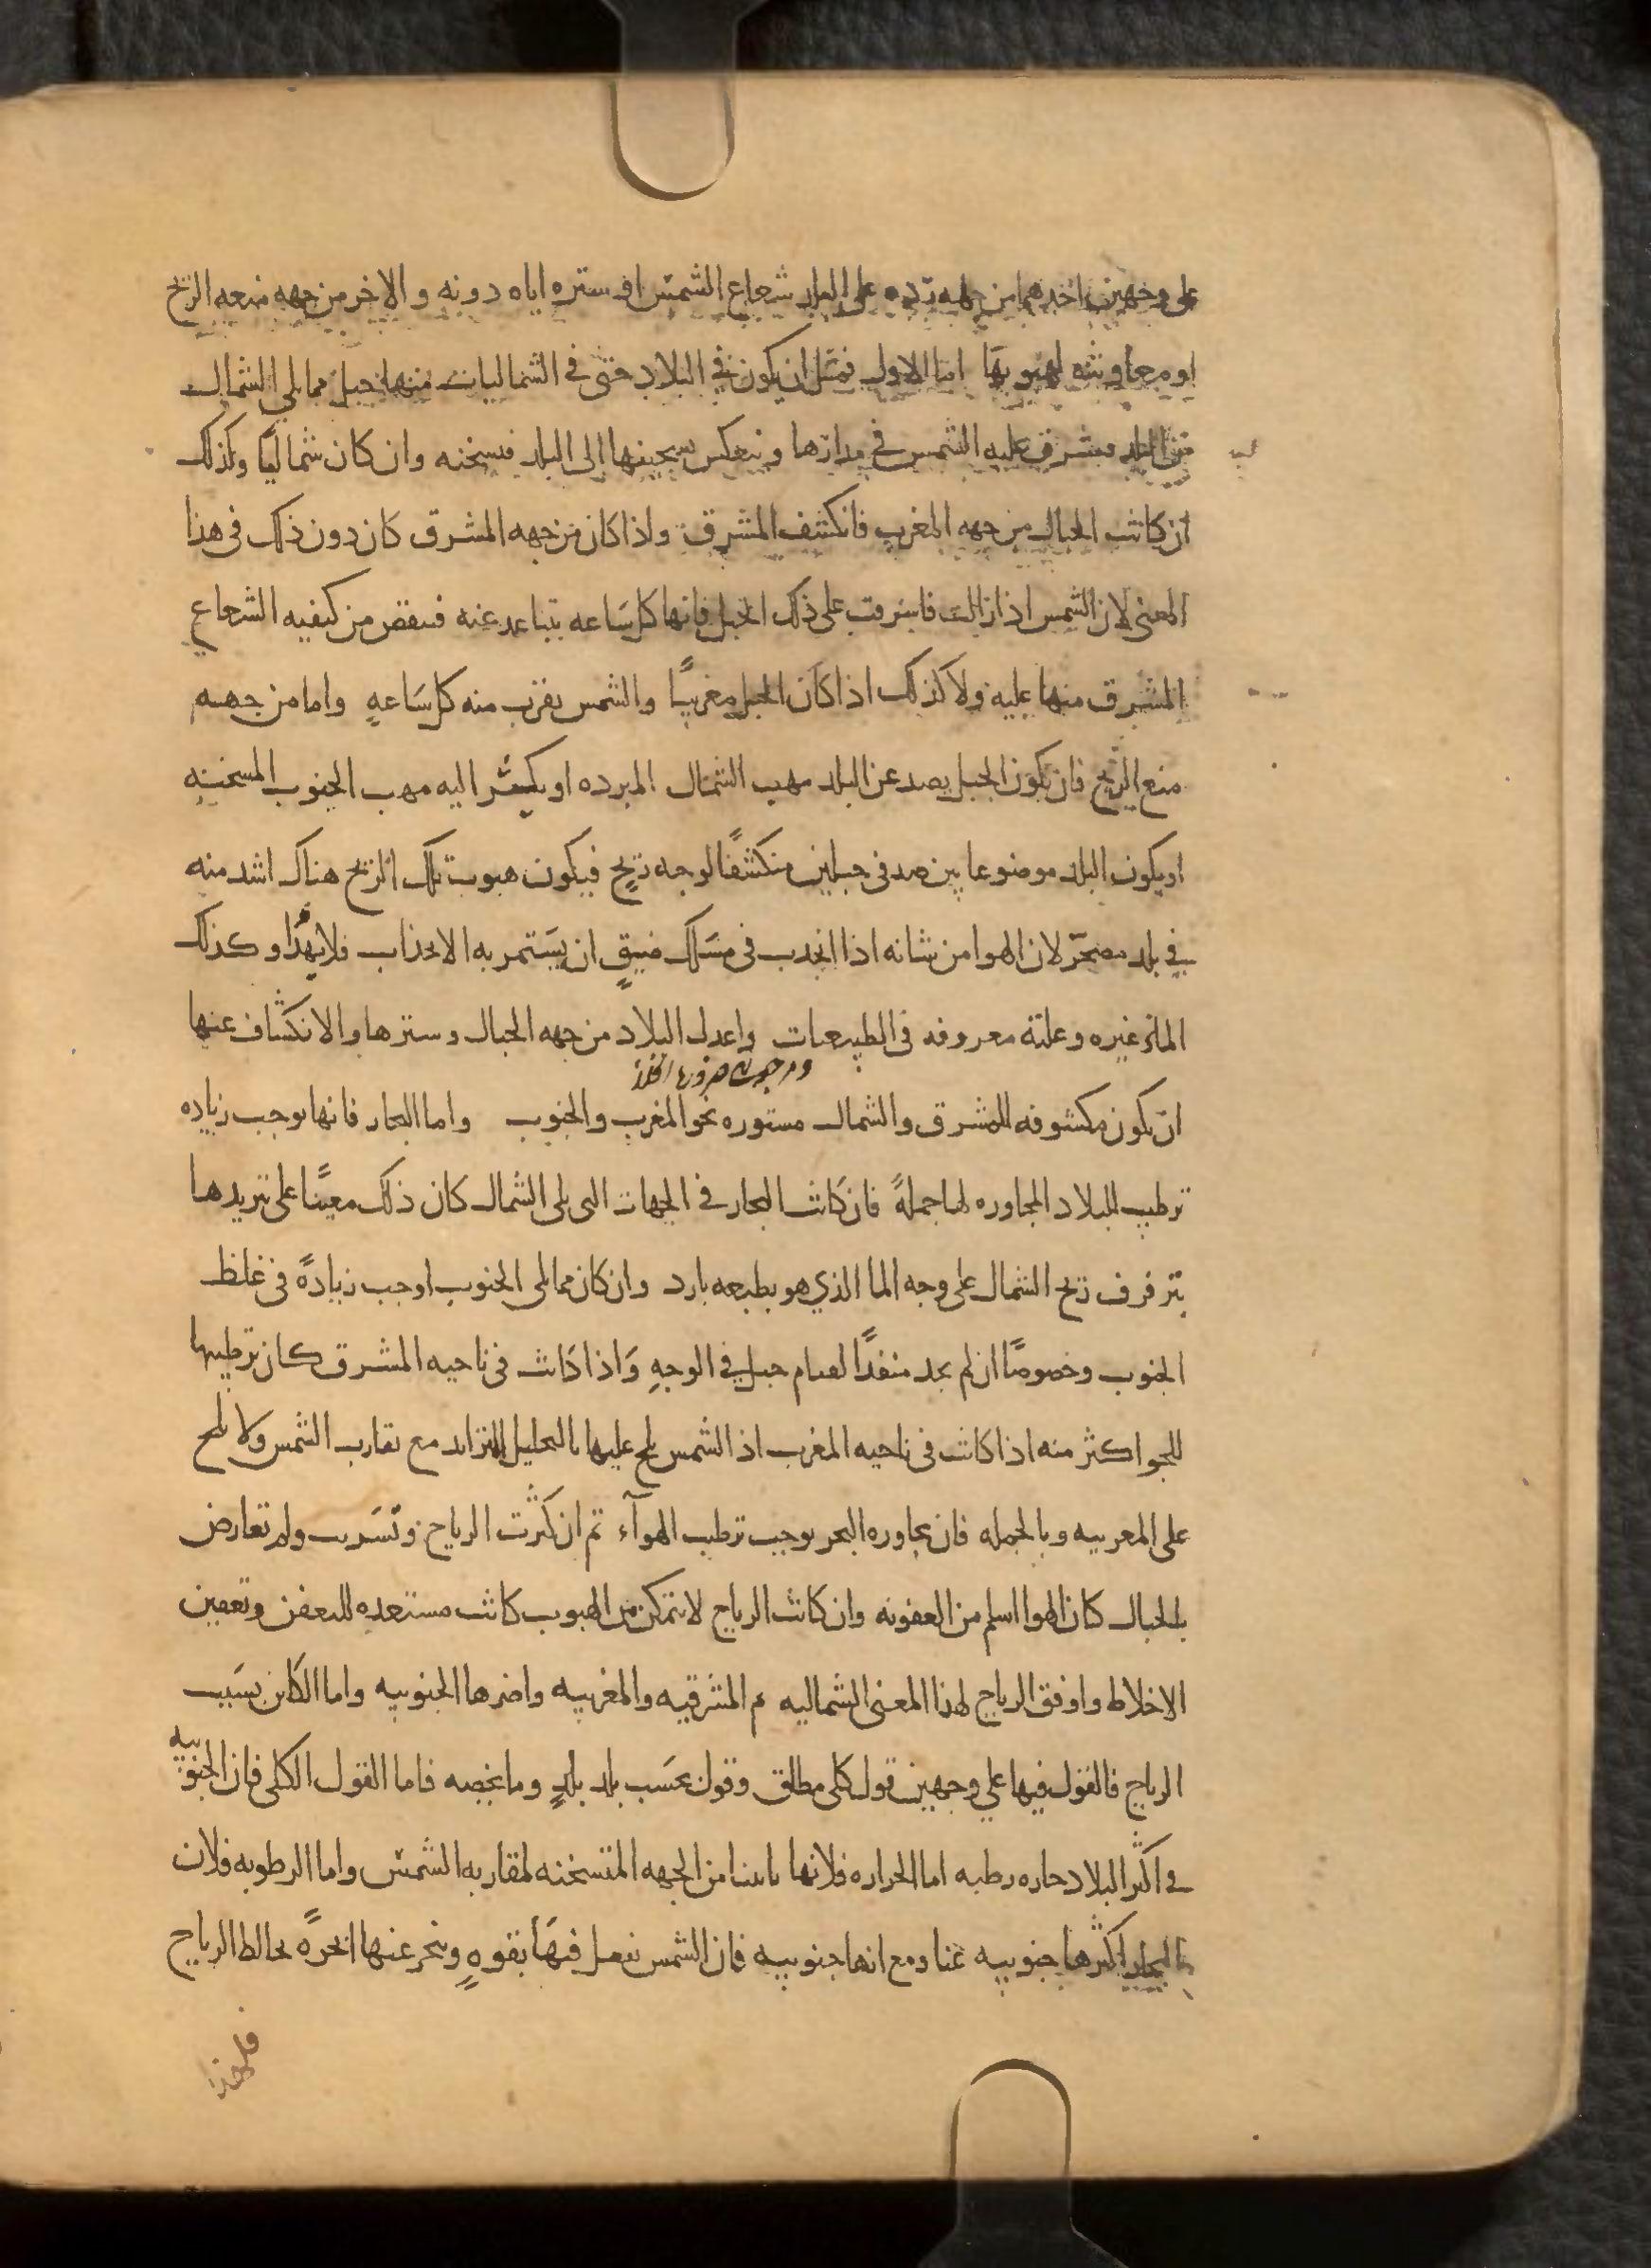 على وجهين احدهما من جهه رده على البلد شعاع الشمس او ستره اياه دونه والاخر من جهه منعه الريح
او معاونته لهبوبها اما الاول فمثل ان يكون في البلاد حتى في الشماليات منها جبل مما يلي الشمال
من البلد فتشرق عليه الشمس في مدارها وينعكس تسخينها الى البلد فيسخنه وان كان شماليا وكذلك
ان كانت الجبال من جهه المغرب فانكشف المشرق واذا كان من جهه المشرق كان دون ذلك في هذا
المعنى لان الشمس اذا زالت فاشرقت على ذلك الجبل فانها كل ساعه تتباعد عنه فينقص من كيفيه الشعاع
المشرق منها عليه ولا كذلك اذا كان الجبل مغربيًا والشمس تقرب منه كل ساعهٍ واما من جهه
منع الريح فان يكون الجبل يصد عن البلد مهب الشمال المبرده او يكبس اليه مهب الجنوب المسخنه
او يكون البلد موضوعا بين صدفى جبلين منكشفًا لوجه ريحٍ فيكون هبوب تلك الريح هناك اشد منه
في بلد مصحر لان الهوا من شانه اذا انجذب في مسلك ضيقٍ ان يستمر به الانجذاب فلا يهدا وكذلك
الماء وغيره وعلته معروفه في الطبيعيات واعدل البلاد من جهه الجبال وسترها والانكشاف عنها
ان تكون مكشوفه للمشرق والشمال مستوره نحو المغرب والجنوب واما البحار فانها توجب زياده
ترطيب للبلاد المجاوره لها جملةً فان كانت البحار في الجهات التى تلى الشمال كان ذلك معينًا على تبريدها
بترفرف ريح الشمال على وجه الما الذي هو بطبعه بارد وان كان مما يلى الجنوب اوجب زيادةً في غلظ
الجنوب وخصوصًا ان لم يجد منفذًا لقيام جبل في الوجهِ واذا كانت في ناحيه المشرق كان ترطيبها
للجو اكثر منه اذا كانت في ناحيه المغرب اذ الشمس تلح عليها بالتحليل المتزايد مع تقارب الشمس ولا تلح
على المغربيه وبالجمله فان مجاوره البحر توجب ترطيب الهوآء ثم ان كثرت الرياح وتسربت ولم تعارض
بالجبال كان الهوا اسلم من العفونه وان كانت الرياح لا تتمكن من الهبوب كانت مستعده للتعفن وتعفين
الاخلاط واوفق الرياح لهذا المعنى الشماليه ثم المشرقيه والمغربيه واضرها الجنوبيه واما الكاين بسبب
الرياح فالقول فيها على وجهين قول كلى مطلق وقول بحسب بلد بلدٍ وما يخصه فاما القول الكلى فان الجنوبيه
في اكثر البلاد حاره رطبه اما الحراره فلانها تاتينا من الجهه المتسخنه لمقاربه الشمس واما الرطوبه فلان
البحار اكثرها جنوبيه عنا ومع انها جنوبيه فان الشمس تفعل فيها بقوهٍ وتبخر عنها ابخرةً تخالط الرياح
فلهذا